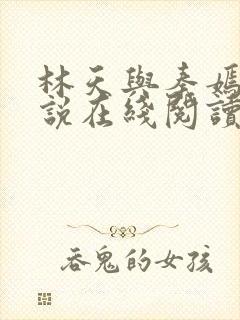 林天與秦嫣
說在綫閱讀
吞鬼的女孩